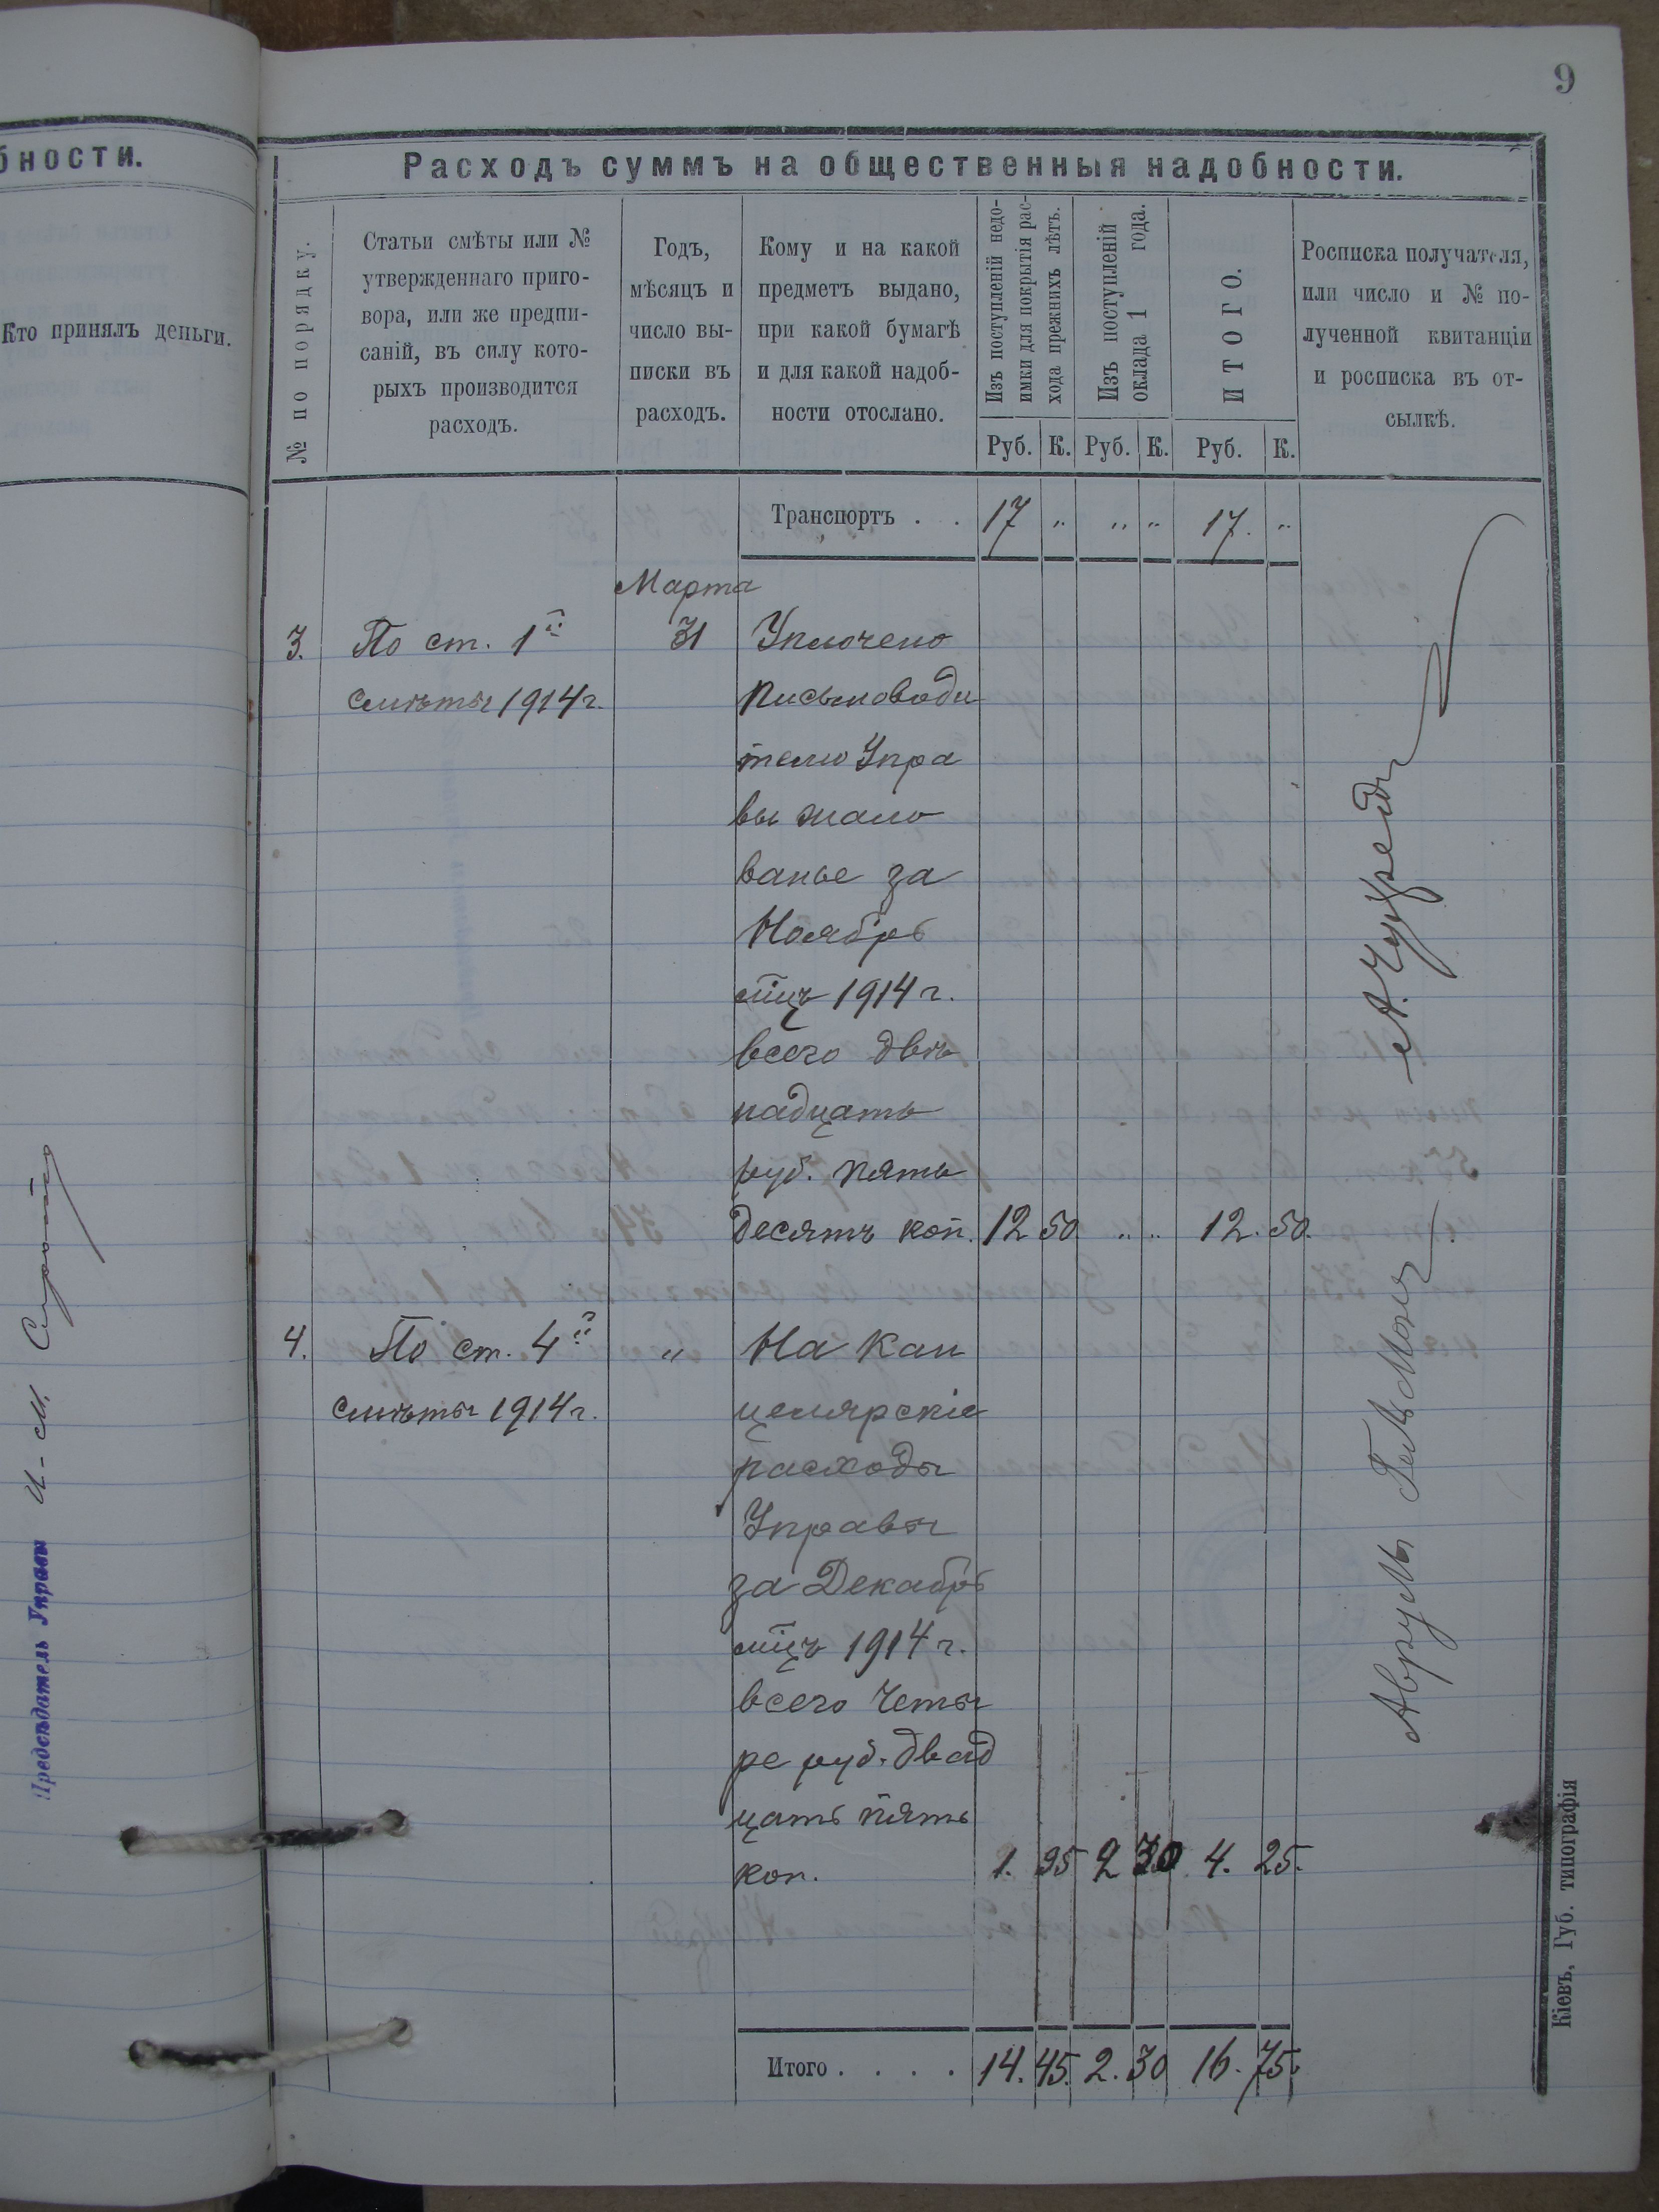 9
бности.
Кто принялъ деньги.
Предсѣдатель Управы
Расходъ суммъ на общественныя надобности.
№ по порядку.
Статьи смѣты или №
утвержденнаго приго-
вора, или же предпи-
саній, въ силу кото-
рыхъ производится
расходъ.
Годъ,
мѣсяцъ и
число вы-
писки въ
расходъ.
Кому и на какой
предметъ выдано,
при какой бумагѣ
и для какой надоб-
ности отослано.
Изъ поступленій недо-
имки для покрытія рас-
хода прежнихъ лѣтъ.
Изъ поступленій
оклада 1 года.
ИТОГО.
Росписка получателя,
или число и № по-
лученной квитанціи
и росписка въ от-
сылкѣ.
Руб. К. Руб. К. Руб. К.
Транспортъ . . 17 " " " 17. "
Марта
3. По ст. 1й 31 Уплочено
смѣты 1914 г. письмоводи
телю Упра
вы жало
ванье за
Ноябрь
мцъ 1914 г.
всего двѣ
надцать
руб. пять
десятъ коп. 12 50 " " 12. 50.
4. По ст. 4й " На кан
смѣты 1914 г. целярскіе
расходы
Управы
за Декабрь
мцъ 1914 г.
всего четы
ре руб. двад
цать пять
коп. 1. 95 2 30 4. 25.
Итого . . . . 14. 45. 2. 30 16. 75.
Аврумъ
Кіевъ, Губ. типографія